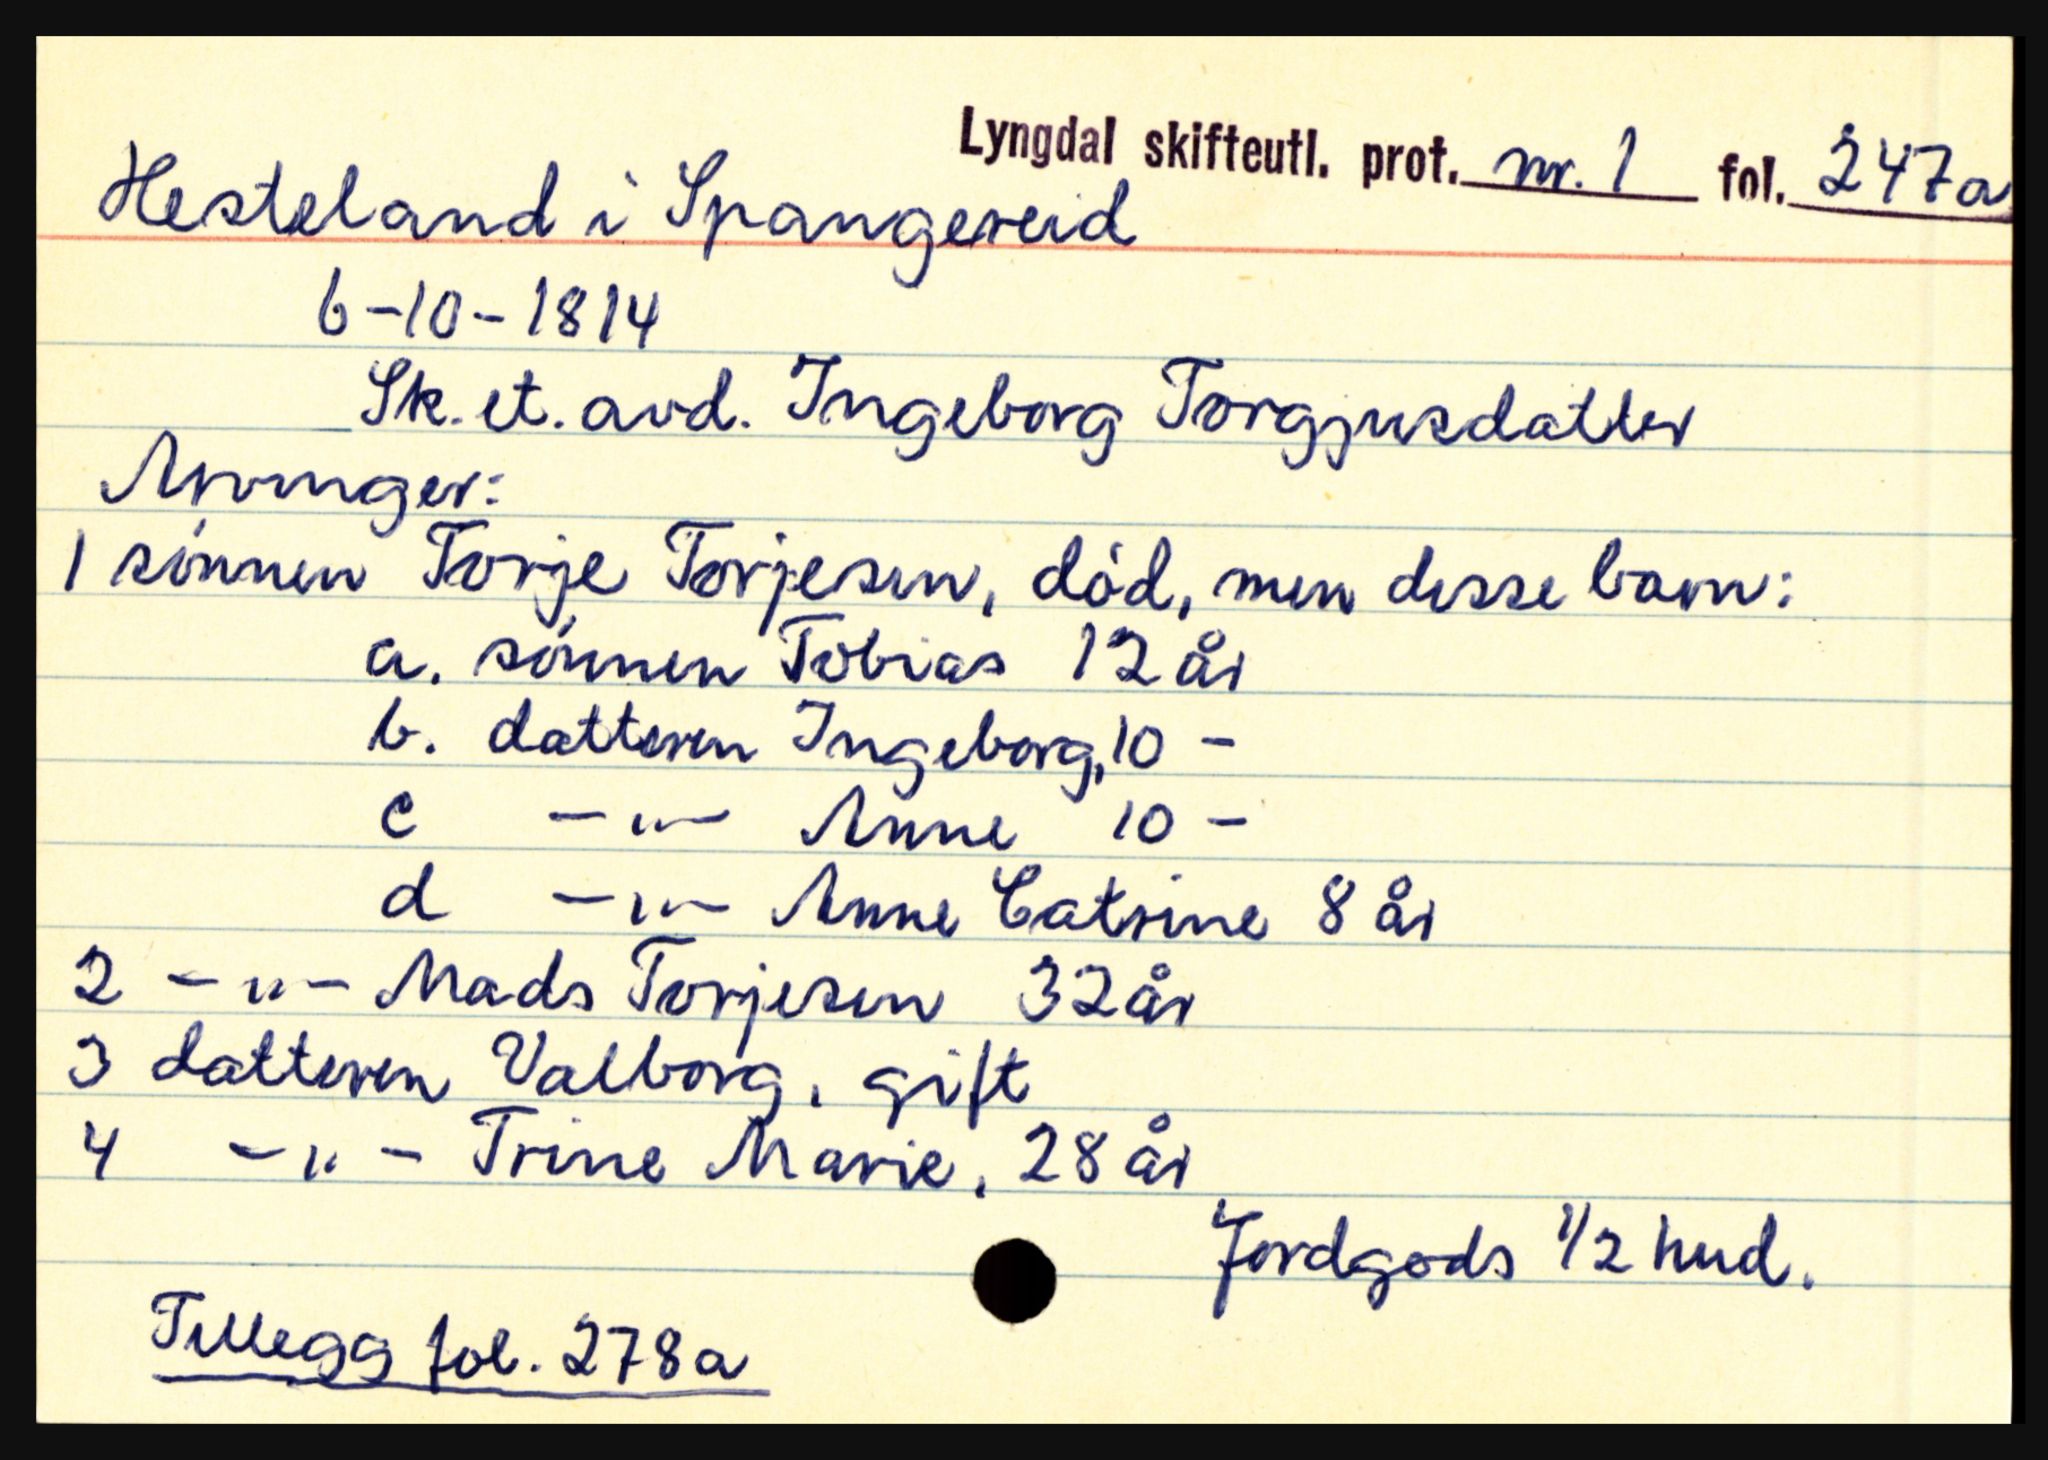 Lyngdal skifteutl. prot. nr. 1 fol. 247a
Hesteland i Spangereid
6-10-1814
Sk. et. avd. Ingeborg Torgjusdatter
Arvinger:
1 sønnen Torje Torjesen, død, men disse barn:
a. sønnen Tobias 12 år
b. datteren Ingeborg, 10 -
c -"- Anne 10 -
d -"- Anne Catrine 8 år
2 -"- Mads Torjesen 32 år
3 datteren Valborg, gift
4 -"- Trine Marie, 28 år
Jordgods 1/2 hud.
Tillegg fol. 278a